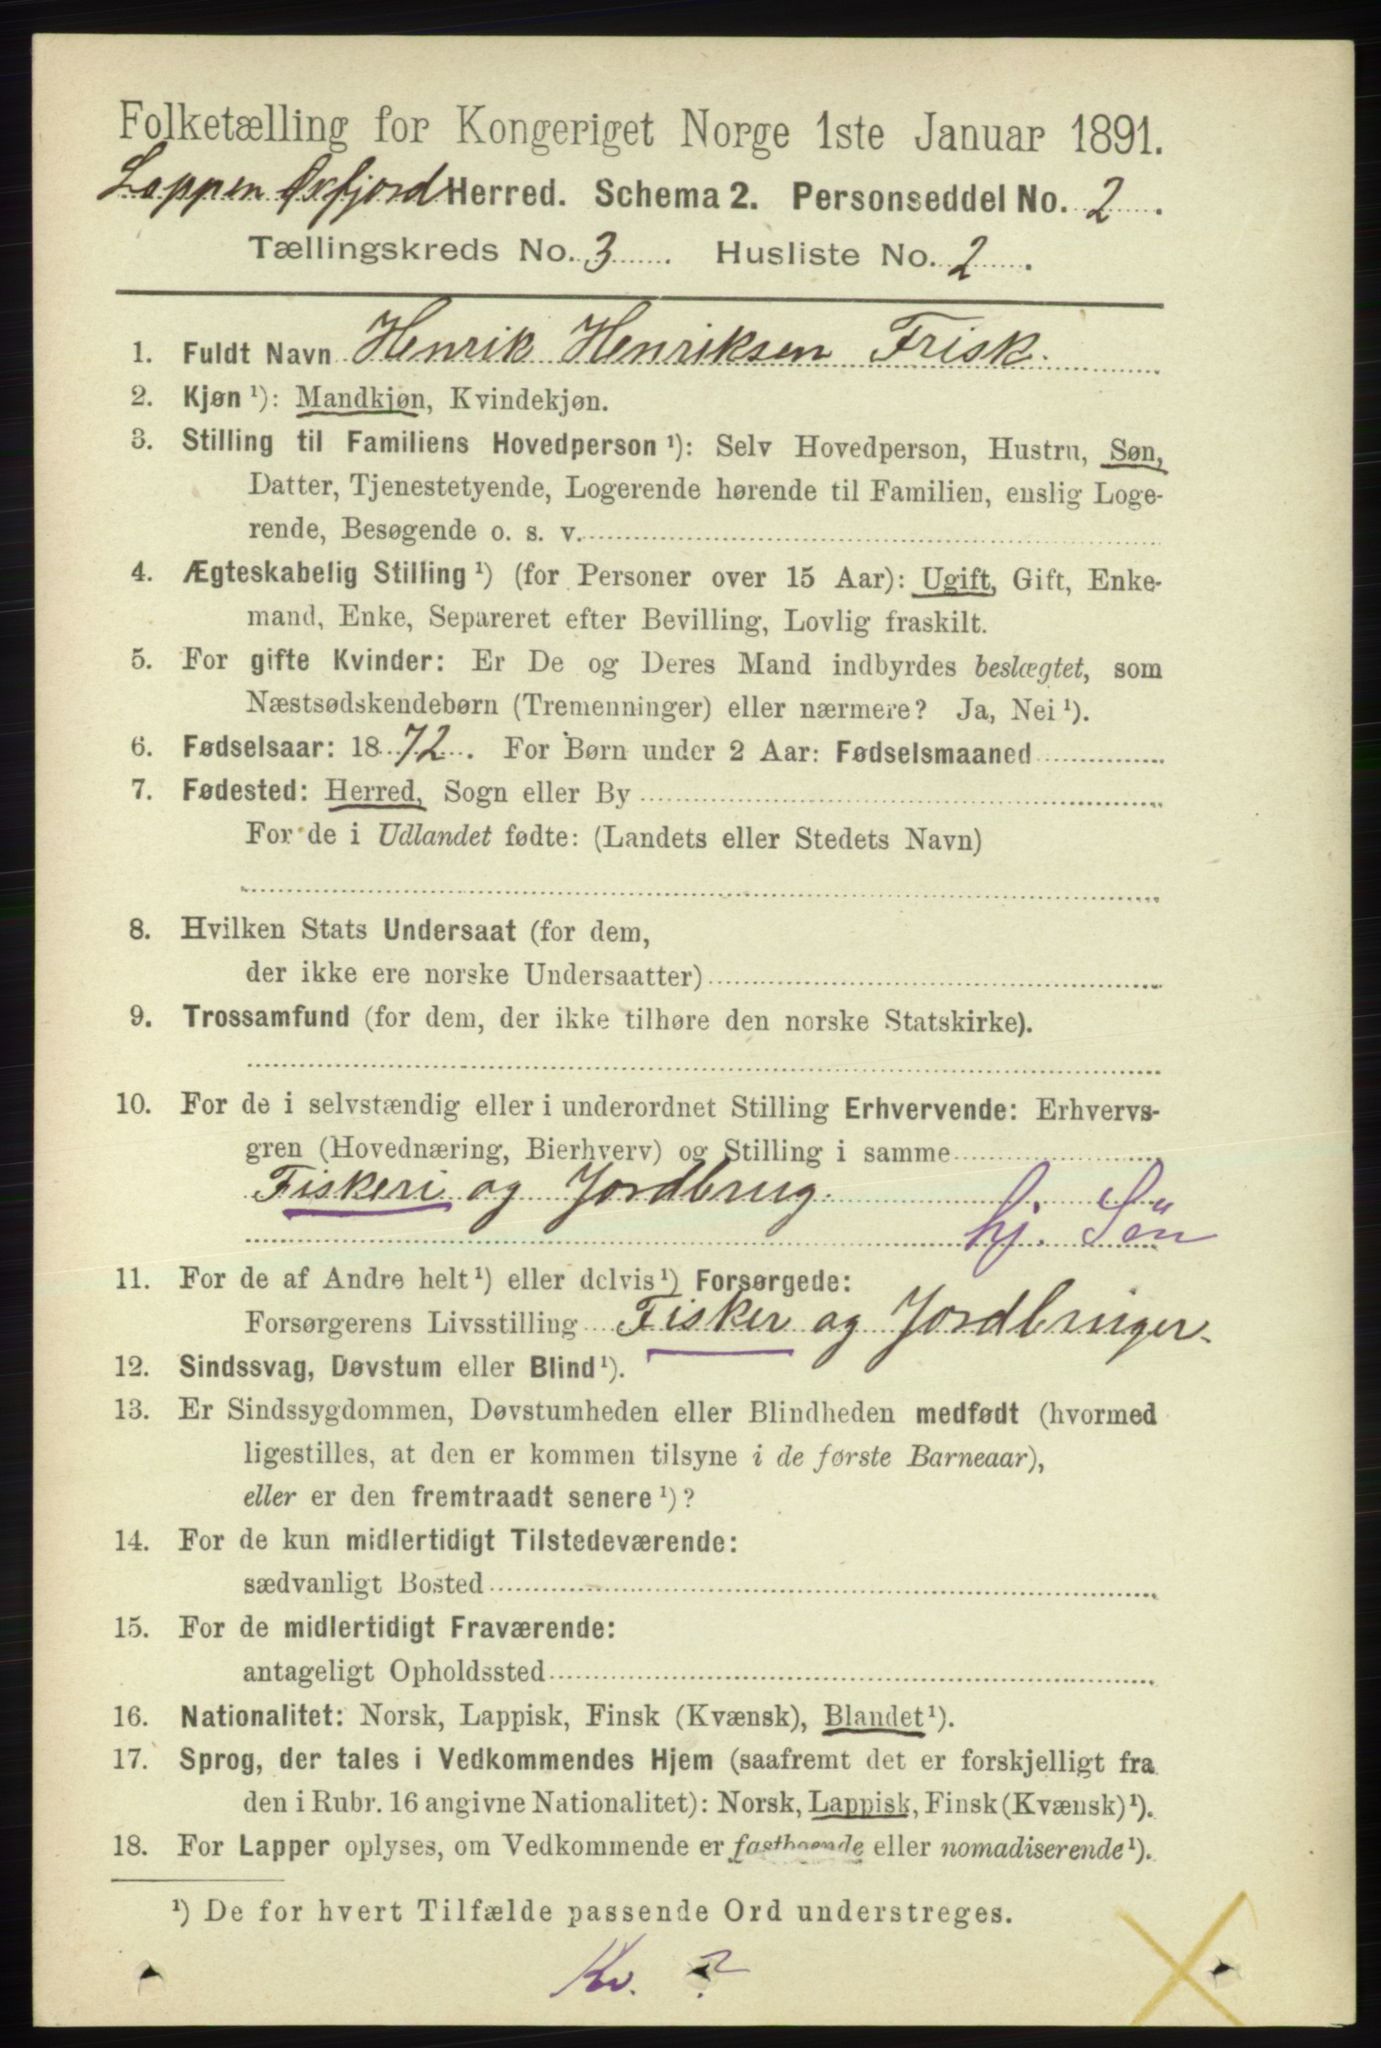 Folketælling for Kongeriget Norge 1ste Januar 1891.
Loppen Øxfjord Herred. Schema 2. Personseddel No. 2.
Tællingskreds No. 3. Husliste No. 2.
1. Fuldt Navn Henrik Henriksen Frisk.
2. Kjøn ¹): Mandkjøn, Kvindekjøn.
3. Stilling til Familiens Hovedperson ¹): Selv Hovedperson, Hustru, Søn,
Datter, Tjenestetyende, Logerende hørende til Familien, enslig Loge-
rende, Besøgende o. s. v.
4. Ægteskabelig Stilling ¹) (for Personer over 15 Aar): Ugift, Gift, Enke-
mand, Enke, Separeret efter Bevilling, Lovlig fraskilt.
5. For gifte Kvinder: Er De og Deres Mand indbyrdes beslægtet, som
Næstsødskendebørn (Tremenninger) eller nærmere? Ja, Nei ¹).
6. Fødselsaar: 1872. For Børn under 2 Aar: Fødselsmaaned
7. Fødested: Herred, Sogn eller By
For de i Udlandet fødte: (Landets eller Stedets Navn)
8. Hvilken Stats Undersaat (for dem,
der ikke ere norske Undersaatter)
9. Trossamfund (for dem, der ikke tilhøre den norske Statskirke).
10. For de i selvstændig eller i underordnet Stilling Erhvervende: Erhvervs-
gren (Hovednæring, Bierhverv) og Stilling i samme
Fiskeri og Jordbrug.
hj. Sön
11. For de af Andre helt ¹) eller delvis ¹) Forsørgede:
Forsørgerens Livsstilling Fisker og Jordbruger.
12. Sindssvag, Døvstum eller Blind ¹).
13. Er Sindssygdommen, Døvstumheden eller Blindheden medfødt (hvormed
ligestilles, at den er kommen tilsyne i de første Barneaar),
eller er den fremtraadt senere ¹)?
14. For de kun midlertidigt Tilstedeværende:
sædvanligt Bosted
15. For de midlertidigt Fraværende:
antageligt Opholdssted
16. Nationalitet: Norsk, Lappisk, Finsk (Kvænsk), Blandet ¹).
17. Sprog, der tales i Vedkommendes Hjem (saafremt det er forskjelligt fra
den i Rubr. 16 angivne Nationalitet): Norsk, Lappisk, Finsk (Kvænsk) ¹).
18. For Lapper oplyses, om Vedkommende er fastboende eller nomadiserende ¹).
¹) De for hvert Tilfælde passende Ord understreges.
Kv. ?